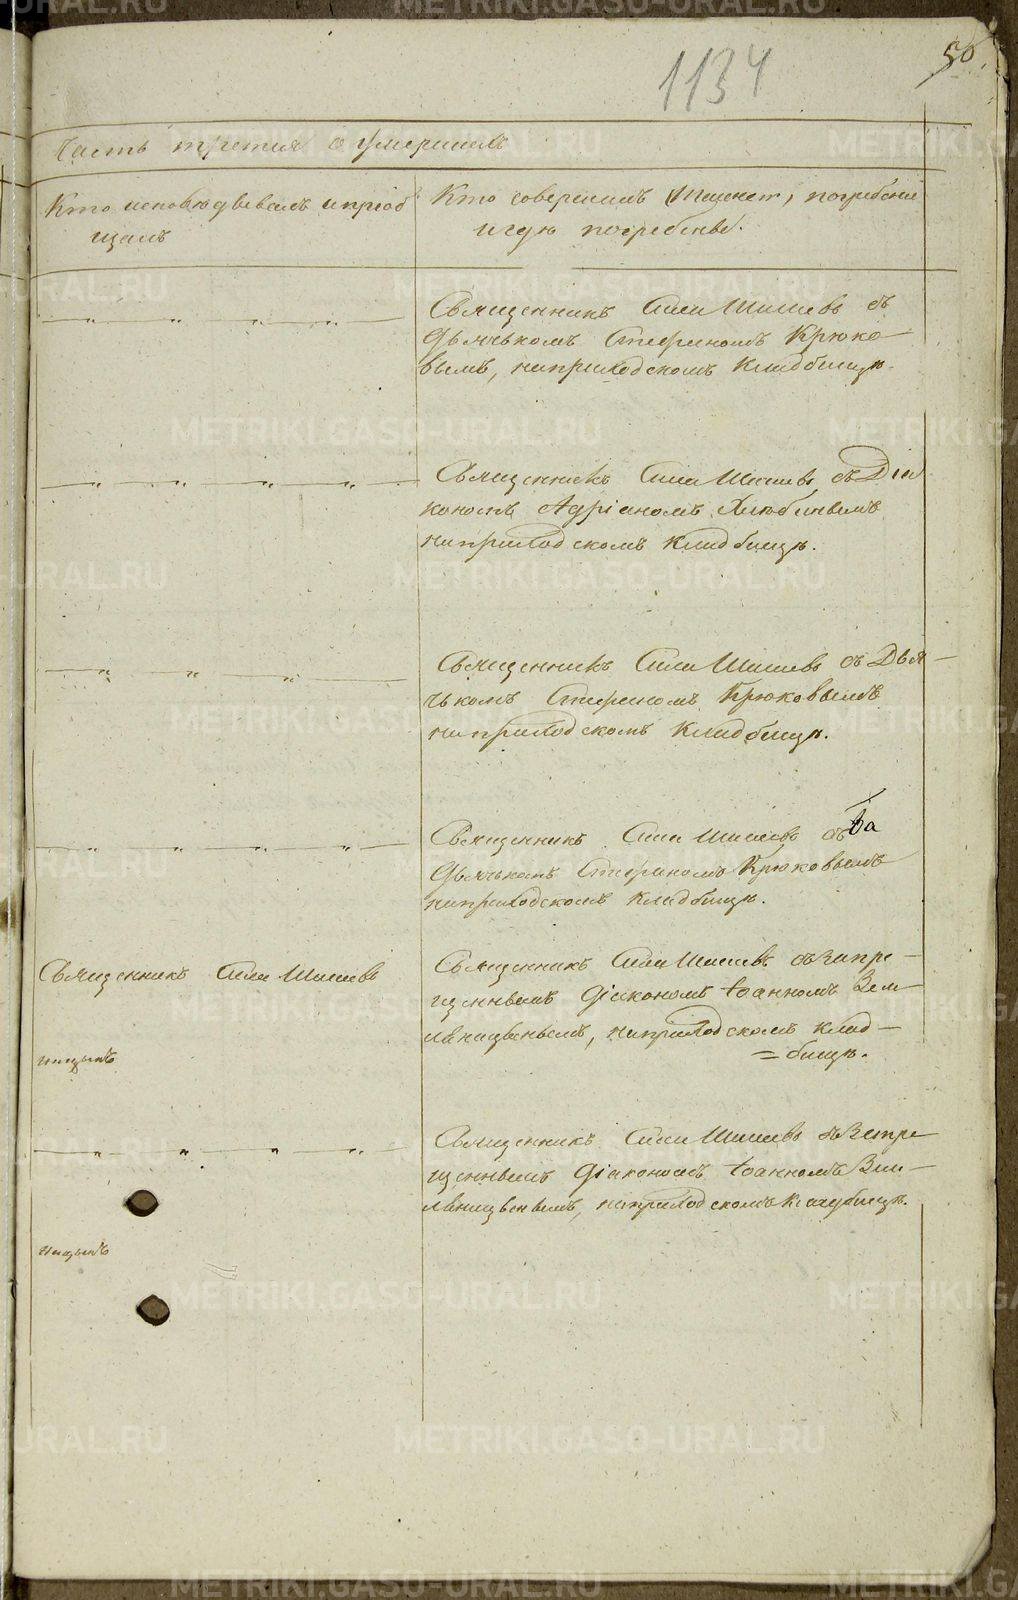 1134
50
Часть третия о умершихъ
Кто исповѣдывалъ и пріоб
щалъ
Кто совершилъ погребеніе
и гдѣ погребены.
Священникъ Сила Шишевъ съ
дьячькомъ Стефаномъ Крюко
вымъ, на приходскомъ кладбищѣ.
Священникъ Сила Шишевъ съ Діа
кономъ Адріаномъ
на приходскомъ кладбищѣ.
Священникъ Сила Шишевъ съ Дья
чькомъ Стефаномъ Крюковымъ
на приходскомъ кладбищѣ.
Священникъ Сила Шишевъ съ
дьячькомъ Стефаномъ Крюковымъ
на приходскомъ кладбищѣ.
Священникъ Сила Шишевъ
Священникъ Сила Шишевъ съ Запре
щеннымъ діакономъ Іоанномъ Зем
ляницынымъ, на приходскомъ клад
= бищѣ.
Священникъ Сила Шишевъ съ Запре
щеннымъ діакономъ Іоанномъ Зем
ляницынымъ, на приходскомъ кладбищѣ.